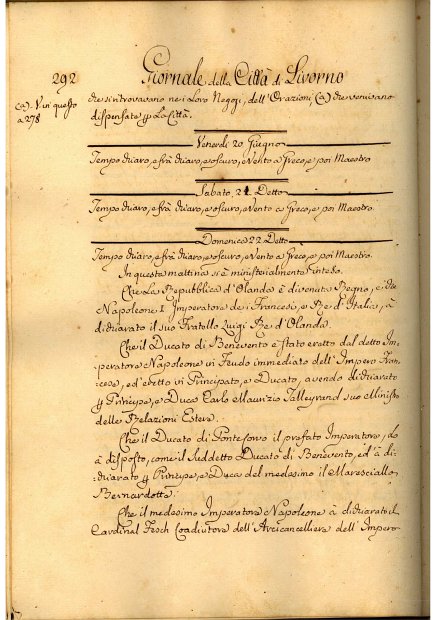 292
Giornale della Città di Livorno
(a). Vivi questo
a 278
che si ritrovavano nei Loro Negozj, dell'Orazioni, (a) che venivano
dispensate p La Città.
Venerdì 20 Giugno
Tempo chiaro, e frà chiaro, e oscuro, e Vento a Greco, e poi Maestro
Sabato, 21. Detto
Tempo chiaro, e frà chiaro, e oscuro, Vento a Greco, e poi Maestro.
Domenica 22 Detto
Tempo chiaro, e frà chiaro, e oscuro, e Vento a Greco, e poi Maestro.
In questa mattina si è ministerialmente inteso.
Che La Repubblica d'Olanda è divenuta Regno, e che
Napoleone I Imperatore dei Francesi, e Re d'Italia, à
dichiarato il suo Fratello Luigi Re d'Olanda.
Che il Ducato di Benevento è stato eretto dal detto Im-
peratore Napoleone in Feudo immediato dell'Impero Fran-
cese, ed eretto in Principato, e Ducato, avendo dichiarato
p Principe, e Duca Carlo Maurizio Talleyrand suo Ministro
delle Relazioni Estere.
Che il Ducato di Pontecorvo il prefato Imperatore, lo
à disposto, come il suddetto Ducato di Benevento, ed à di-
chiarato p Principe, e Duca del medesimo il Maresciallo
Bernardotte.
Che il medesimo Imperatore Napoleone à dichiarato il
Cardinal Fesch Coadiutore dell'Arcicancelliere dell'Impero